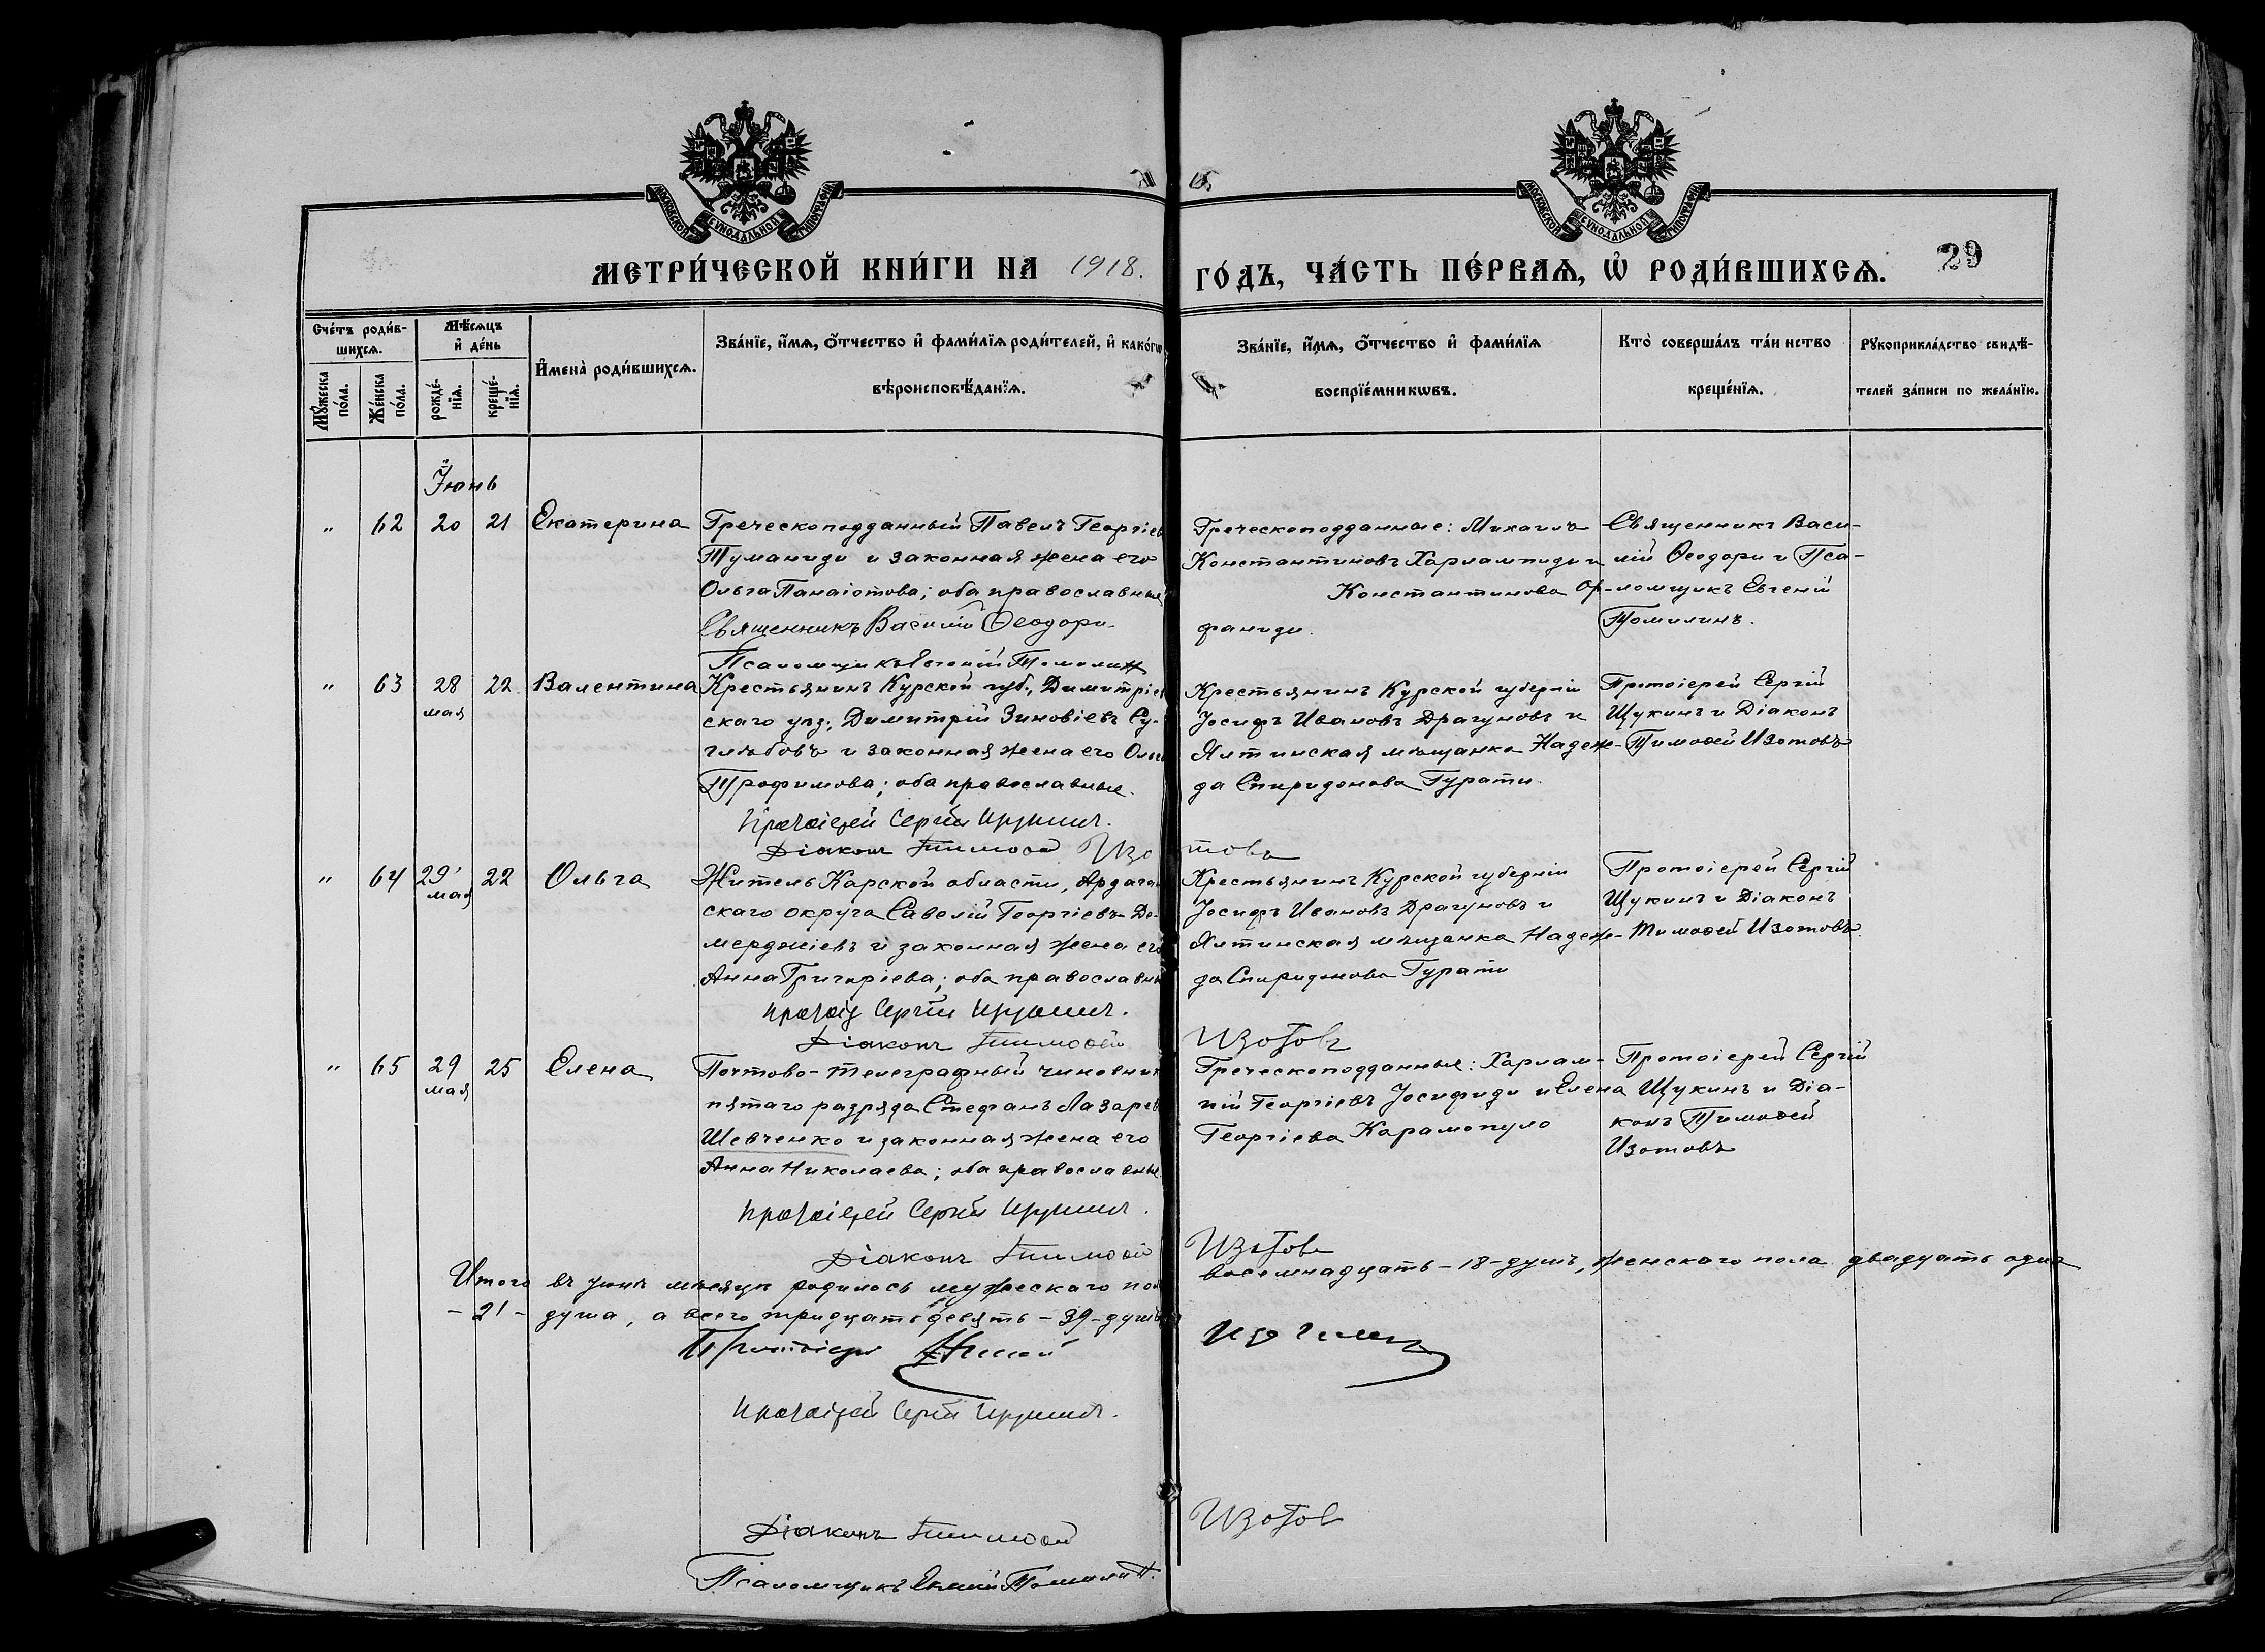 МОСКОВСКОЙ СУНОДАЛЬНОЙ ТИПОГРАФІИ
МОСКОВСКОЙ СУНОДАЛЬНОЙ ТИПОГРАФІИ
МЕТРИ́ЧЕСКОЙ КНИ́ГИ НА 1918. ГО́ДЪ, ЧА́СТЬ ПЕ́РВАѦ, Ѿ РОДИ́ВШИХСѦ. 29
Сче́тъ роди́в-
шихсѧ.
Мꙋ́жеска по́ла.
Же́нска по́ла.
Мѣ́сѧцъ и҆ де́нь
рожде́-нїѧ.
креще́-нїѧ.
И҆мена̀ роди́вшихсѧ.
Зва́нїе, и҆́мѧ, ѻ҆́тчество и҆ фами́лїѧ роди́телей, и҆ како́гѡ
вѣроисповѣ́данїѧ.
Зва́нїе, и҆́мѧ, ѻ҆́тчество и҆ фами́лїѧ
воспрїе́мникѡвъ.
Кто̀ соверша́лъ та́инство
креще́нїѧ.
Рꙋкоприкла́дство свидѣ́-
телей за́писи по жела́нїю.
Іюнь
" 62 20 21 Екатерина
Греческоподданный Павелъ Георгіев
Туманиди и законная жена его
Ольга Панаіотова; оба православные
Священникъ Василій Ѳеодори.
Псаломщикъ Евгеній Томилин
Греческоподданные: Михаилъ
Константиновъ Харлампиди и
Константинова Ор-
фаниди.
Священникъ Васи-
лій Ѳеодори и Пса-
ломщикъ Евгеній
Томилинъ.
" 63 28 мая 22 Валентина
Крестьянинъ Курской губ., Димитріев
скаго уѣз., Димитрій Зиновіевъ Су-
глѣбовъ и законная жена его Ольга
Трофимова; оба православные.
Протоіерей Сергій Щукинъ.
Діаконъ Тимоѳей Изотовъ
Крестьянинъ Курской губерніи
Іосифъ Ивановъ Драгуновъ и
Ялтинская мѣщанка Надеж-
да Спиридонова Гурати.
Протоіерей Сергій
Щукинъ и Діаконъ
Тимоѳей Изотовъ
" 64 29 мая 22 Ольга
Житель Карской области, Ардаган
скаго округа Савелій Георгіевъ Де-
мерджіевъ и законная жена его
Анна Григоріева; оба православные
Протоіер Сергій Щукинъ.
Діаконъ Тимоѳей Изотовъ
Крестьянинъ Курской губерніи
Іосифъ Ивановъ Драгуновъ и
Ялтинская мѣщанка Надеж-
да Спиридонова Гурати
Протоіерей Сергій
Щукинъ и Діаконъ
Тимоѳей Изотовъ.
" 65 29 мая 25 Елена
Почтово-телеграфный чиновник
пятаго разряда Стефанъ Лазарев
Шевченко и законная жена его
Анна Николаева; оба православные.
Протоіерей Сергій Щукинъ.
Діаконъ Тимоѳей Изотовъ
Греческоподданные: Харлам-
пій Георгіевъ Іосифиди и Елена
Георгіева Карамопуло
Протоіерей Сергій
Щукинъ и Діа-
конъ Тимоѳей
Изотовъ
Итого въ Іюнѣ мѣсяцѣ родилось мужескаго пол восемнадцать - 18 - душъ, женскаго пола двадцать одна
- 21 - душа, а всего тридцать девять - 39 - душъ
Протоіерей
Протоіерей Сергій Щукинъ.
Діаконъ Тимоѳей Изотов
Псаломщикъ Евгеній Томилин.